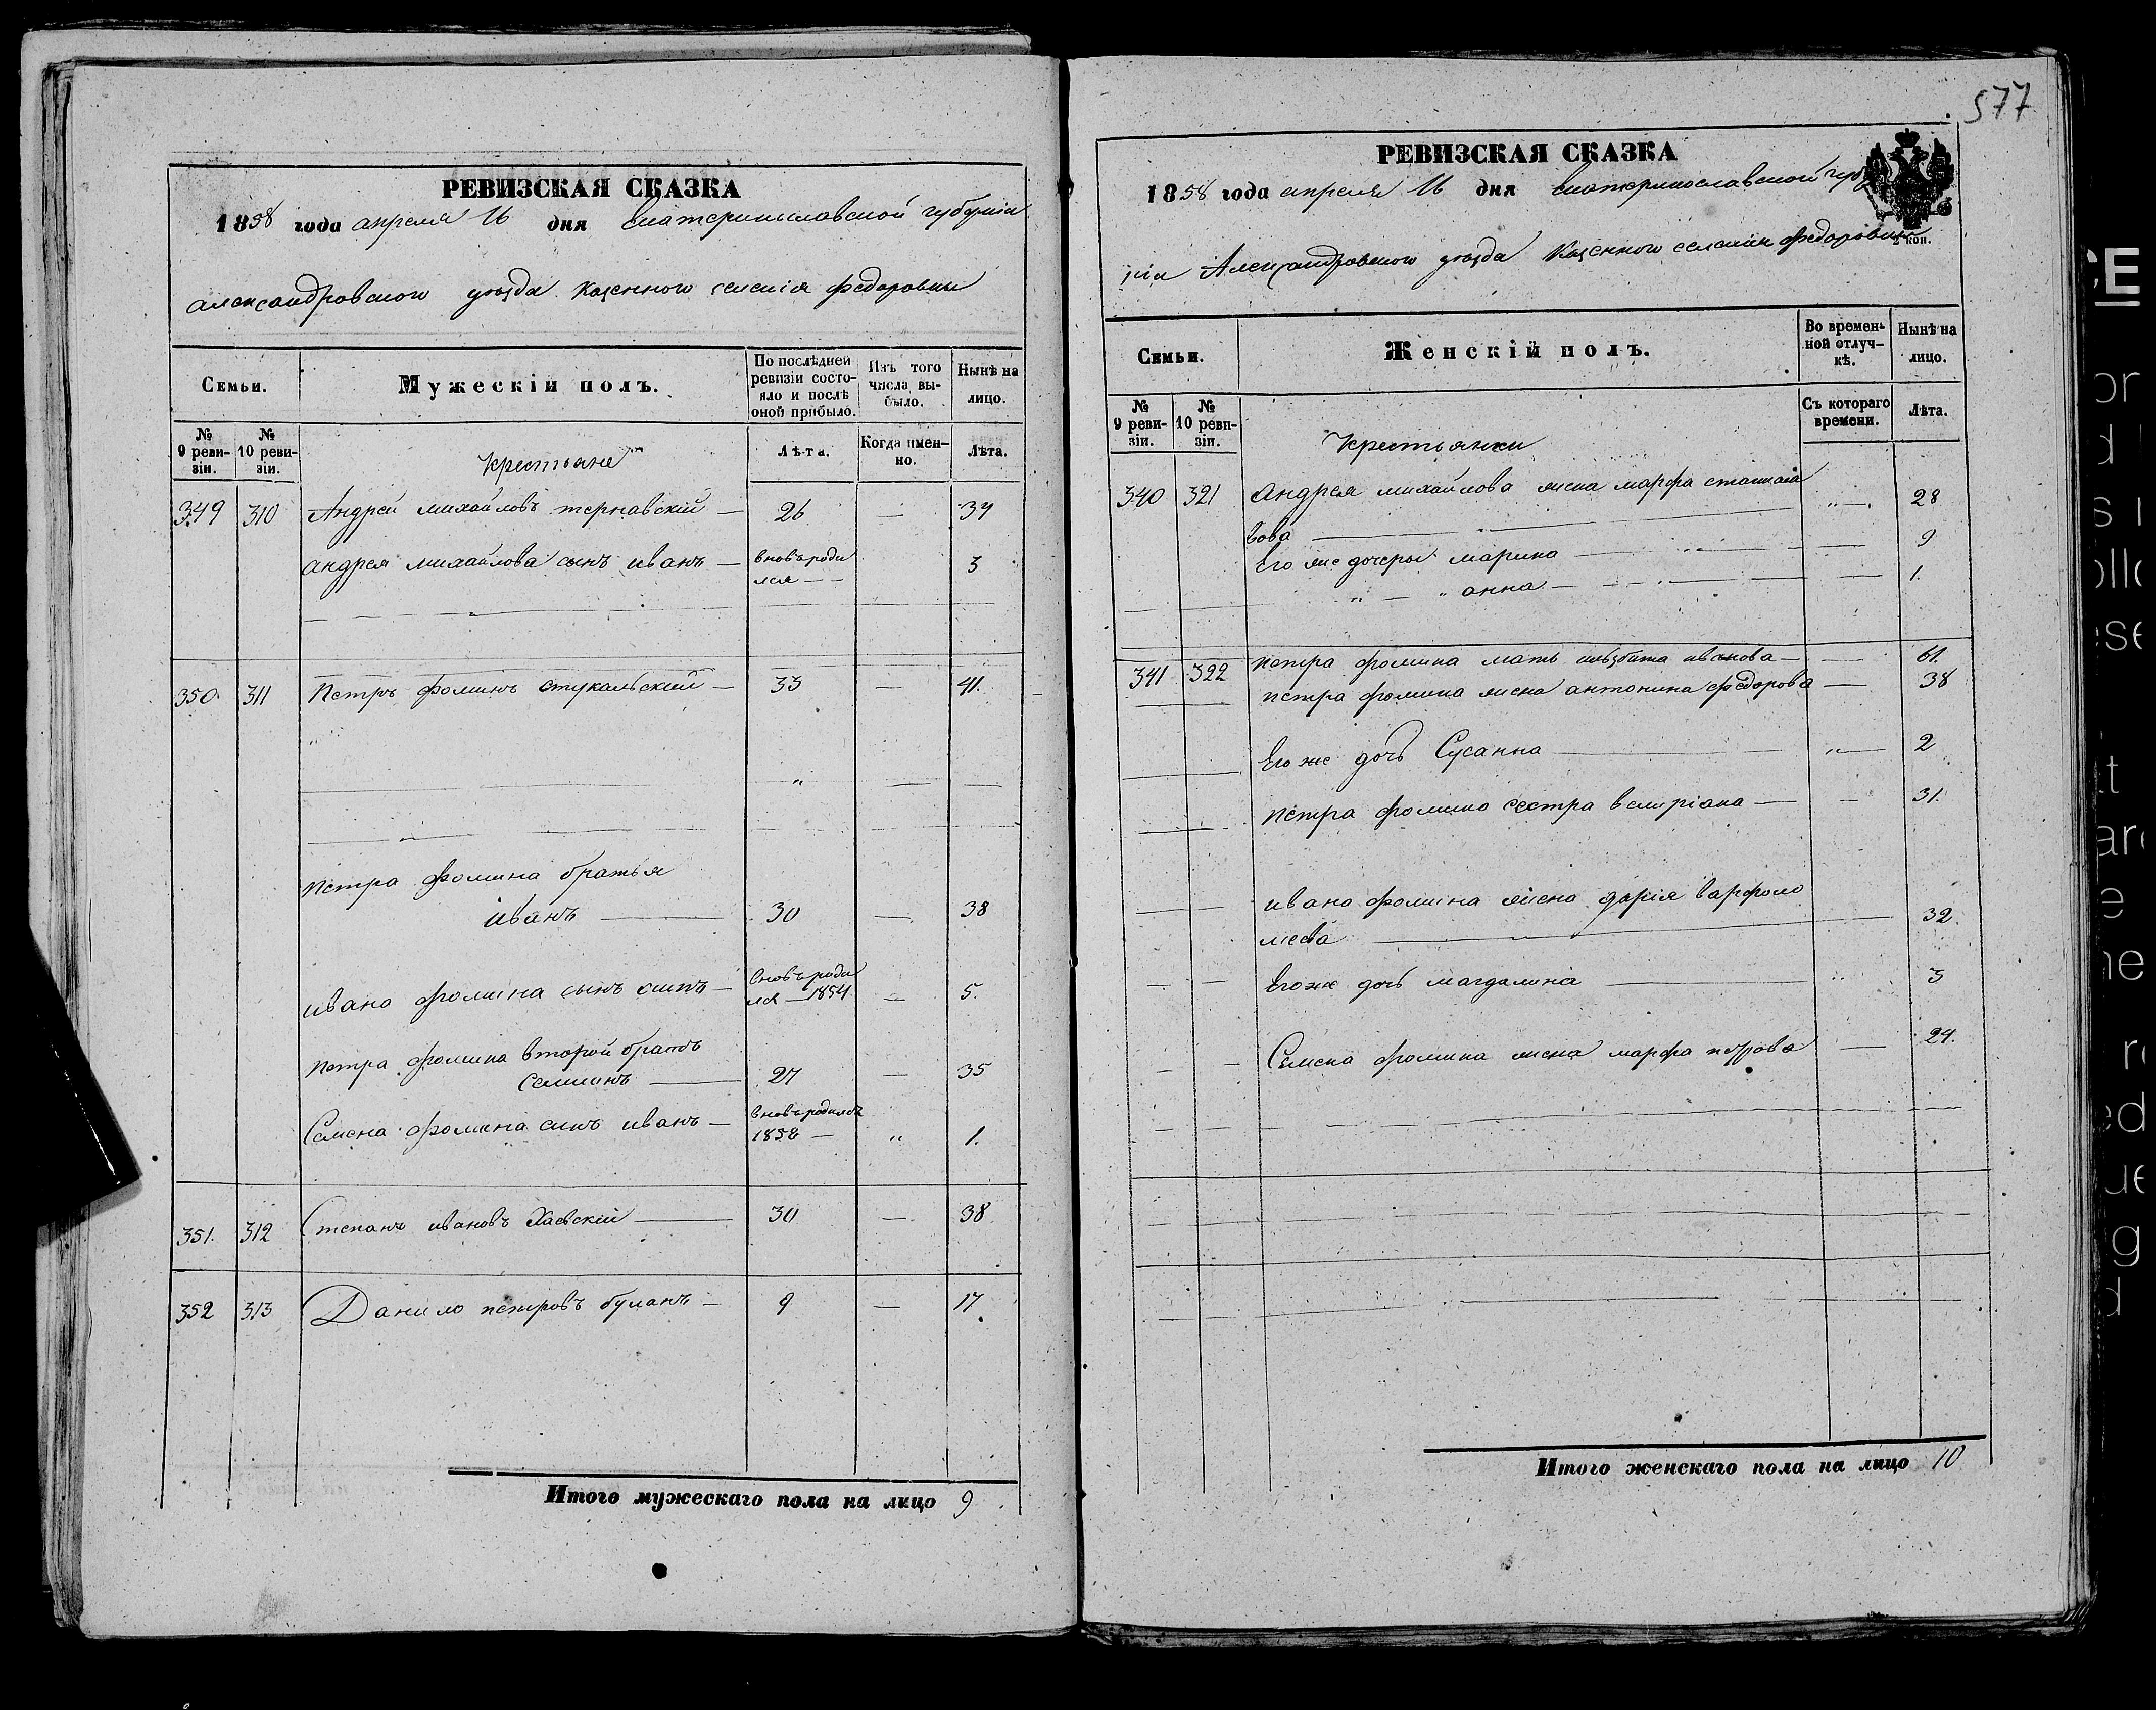 РЕВИЗСКАЯ СКАЗКА
1858 года апреля 16 дня Екатеринославской губерніи
александровского уѣзда казенного селенія федоровки
Семьи.
Мужескій полъ.
По послѣдней ревизіи состояло и послѣ оной прибыло.
Изъ того числа выбыло.
Нынѣ на лицо.
№ 9 ревизіи.
№ 10 ревизіи.
Лѣта.
Когда именно.
Лѣта.
Крестьяне
349 310 Андрей михайловъ тернавскій — 26 — 34
андрея михайлова сынъ иванъ — вновь роди
лся — — 3
350. 311 Петръ фоминъ стукальскій — 33 — 41.
петра фомина братья
иванъ — 30 — 38
ивана фомина сынъ — вновь роди
лся — 1854 — 5.
петра фомина второй братъ
— 27 — 35
Семена фомина сынъ иванъ — вновь родился
1858 — „ 1.
351. 312 Степанъ ивановъ Хаевскій — 30 — 38
352 313 Данило петровъ буланъ — 9 — 17.
Итого мужескаго пола на лицо 9
577
РЕВИЗСКАЯ СКАЗКА
1858 года апреля 16 дня Екатеринославской губер
ніи Александровского уѣзда Казенного селенія федоровки
2 коп.
Семьи.
Женскій полъ.
Во временной отлучкѣ.
Нынѣ на лицо.
№ 9 ревизіи.
№ 10 ревизіи.
Съ котораго времени.
Лѣта.
Крестьянки
340 321 андрея михайлова жена марфа „ — 28
Его же дочери марина — — 9
„ — „ анна — — 1.
341 322 петра фомина мать иванова — — 61.
петра фомина жена антонина федорова — 38
Его же дочь Сусанна — „ — 2
петра фомина сестра — — 31.
ивана фомина жена дарія варфоло
меева — 32.
Его же дочь магдалина — „ 3
Семена фомина жена марфа петрова — 24.
Итого женскаго пола на лицо 10